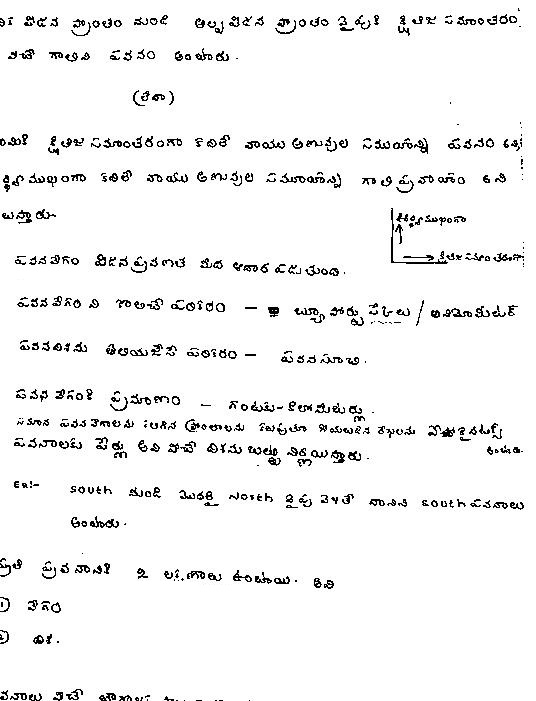 పీడన ప్రాంతం నుండి అల్ప పీడన ప్రాంతం వైపుకి క్షితిజ సమాంతరం
వీచే గాలిని పవనం అంటారు.
(లేదా)
క్షితిజ సమాంతరంగా కదిలే వాయు అణువుల సముదాయాన్ని పవనం
ముఖంగా కదిలే వాయు అణువుల సముదాయాన్ని గాలి ప్రవాహం అని
ముఖంగా
క్షితిజ సమాంతరంగా
పవనవేగం పీడన ప్రవణత మీద ఆధారపడుతుంది.
పవనవేగంని కొలిచే పరికరం - బ్యూఫోర్టు స్కేలు / అనిమోమీటర్
పవనదిశను తెలియజేసే పరికరం - పవనసూచి.
పవన వేగంకి ప్రమాణం - గంటకు-కిలోమీటర్లు.
సమాన పవన వేగాలను కలిగిన ప్రాంతాలను కలుపుతూ గీయబడిన రేఖలను
అంటారు.
పవనాలకు పేర్లు అవి వీచే దిశను బట్టి నిర్ణయిస్తారు.
Ex:- South నుండి మొదలై North వైపు వెళితే దానిని South పవనాలు
అంటారు.
ప్రతి పవనానికి 2 లక్షణాలు ఉంటాయి. అవి
① వేగం
② దిశ.